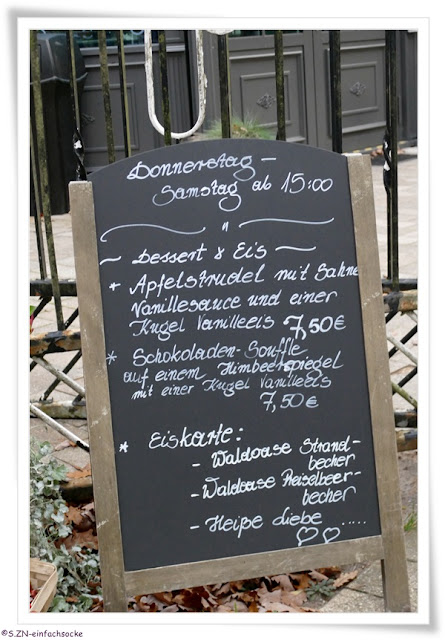 Donnerstag -
Samstag ab 15:00
"
~ Dessert & Eis ~
+ Apfelstrudel mit Sahne
Vanillesauce und einer
Kugel Vanilleeis 7,50€
* Schokoladen-Souffle
auf einem Himbeerspiegel
mit einer Kugel Vanilleeis
7,50€
* Eiskarte:
- Waldoase Strand-
becher
- Waldoase Preiselbeer-
becher
- Heiße Liebe .....
©S.ZN-einfachsocke